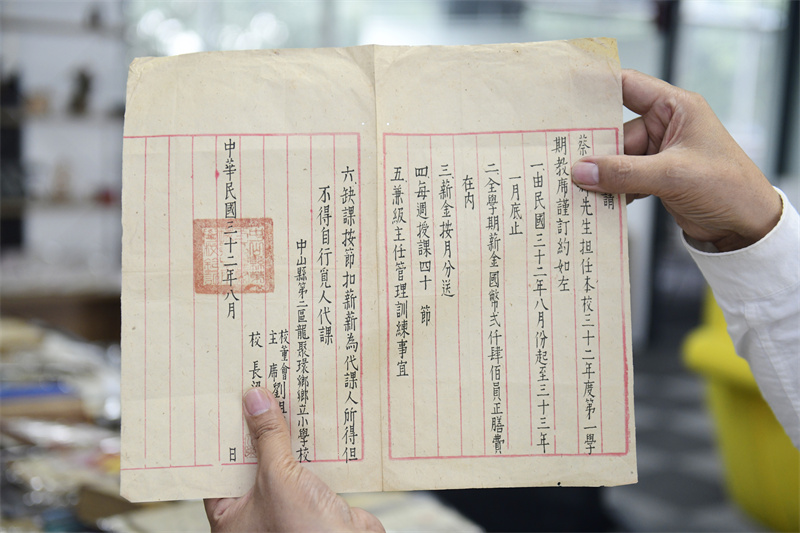 請
蔡 先生担任本校三十二年度第一學
期教席謹訂約如左
一由民國三十二年八月份起至三十三年
一月底止
二全學期薪金國幣弍仟肆佰員正膳費
在内
三薪金按月份送
四每週授課四十 節
五兼級主任管理訓練事宜
六缺課按節扣薪薪為代課人所得但
不得自行覓人代課
中山縣第二區龍聚環鄉鄉立小學校
校董會
主席劉
校長梁
中華民國三十二年八月 日